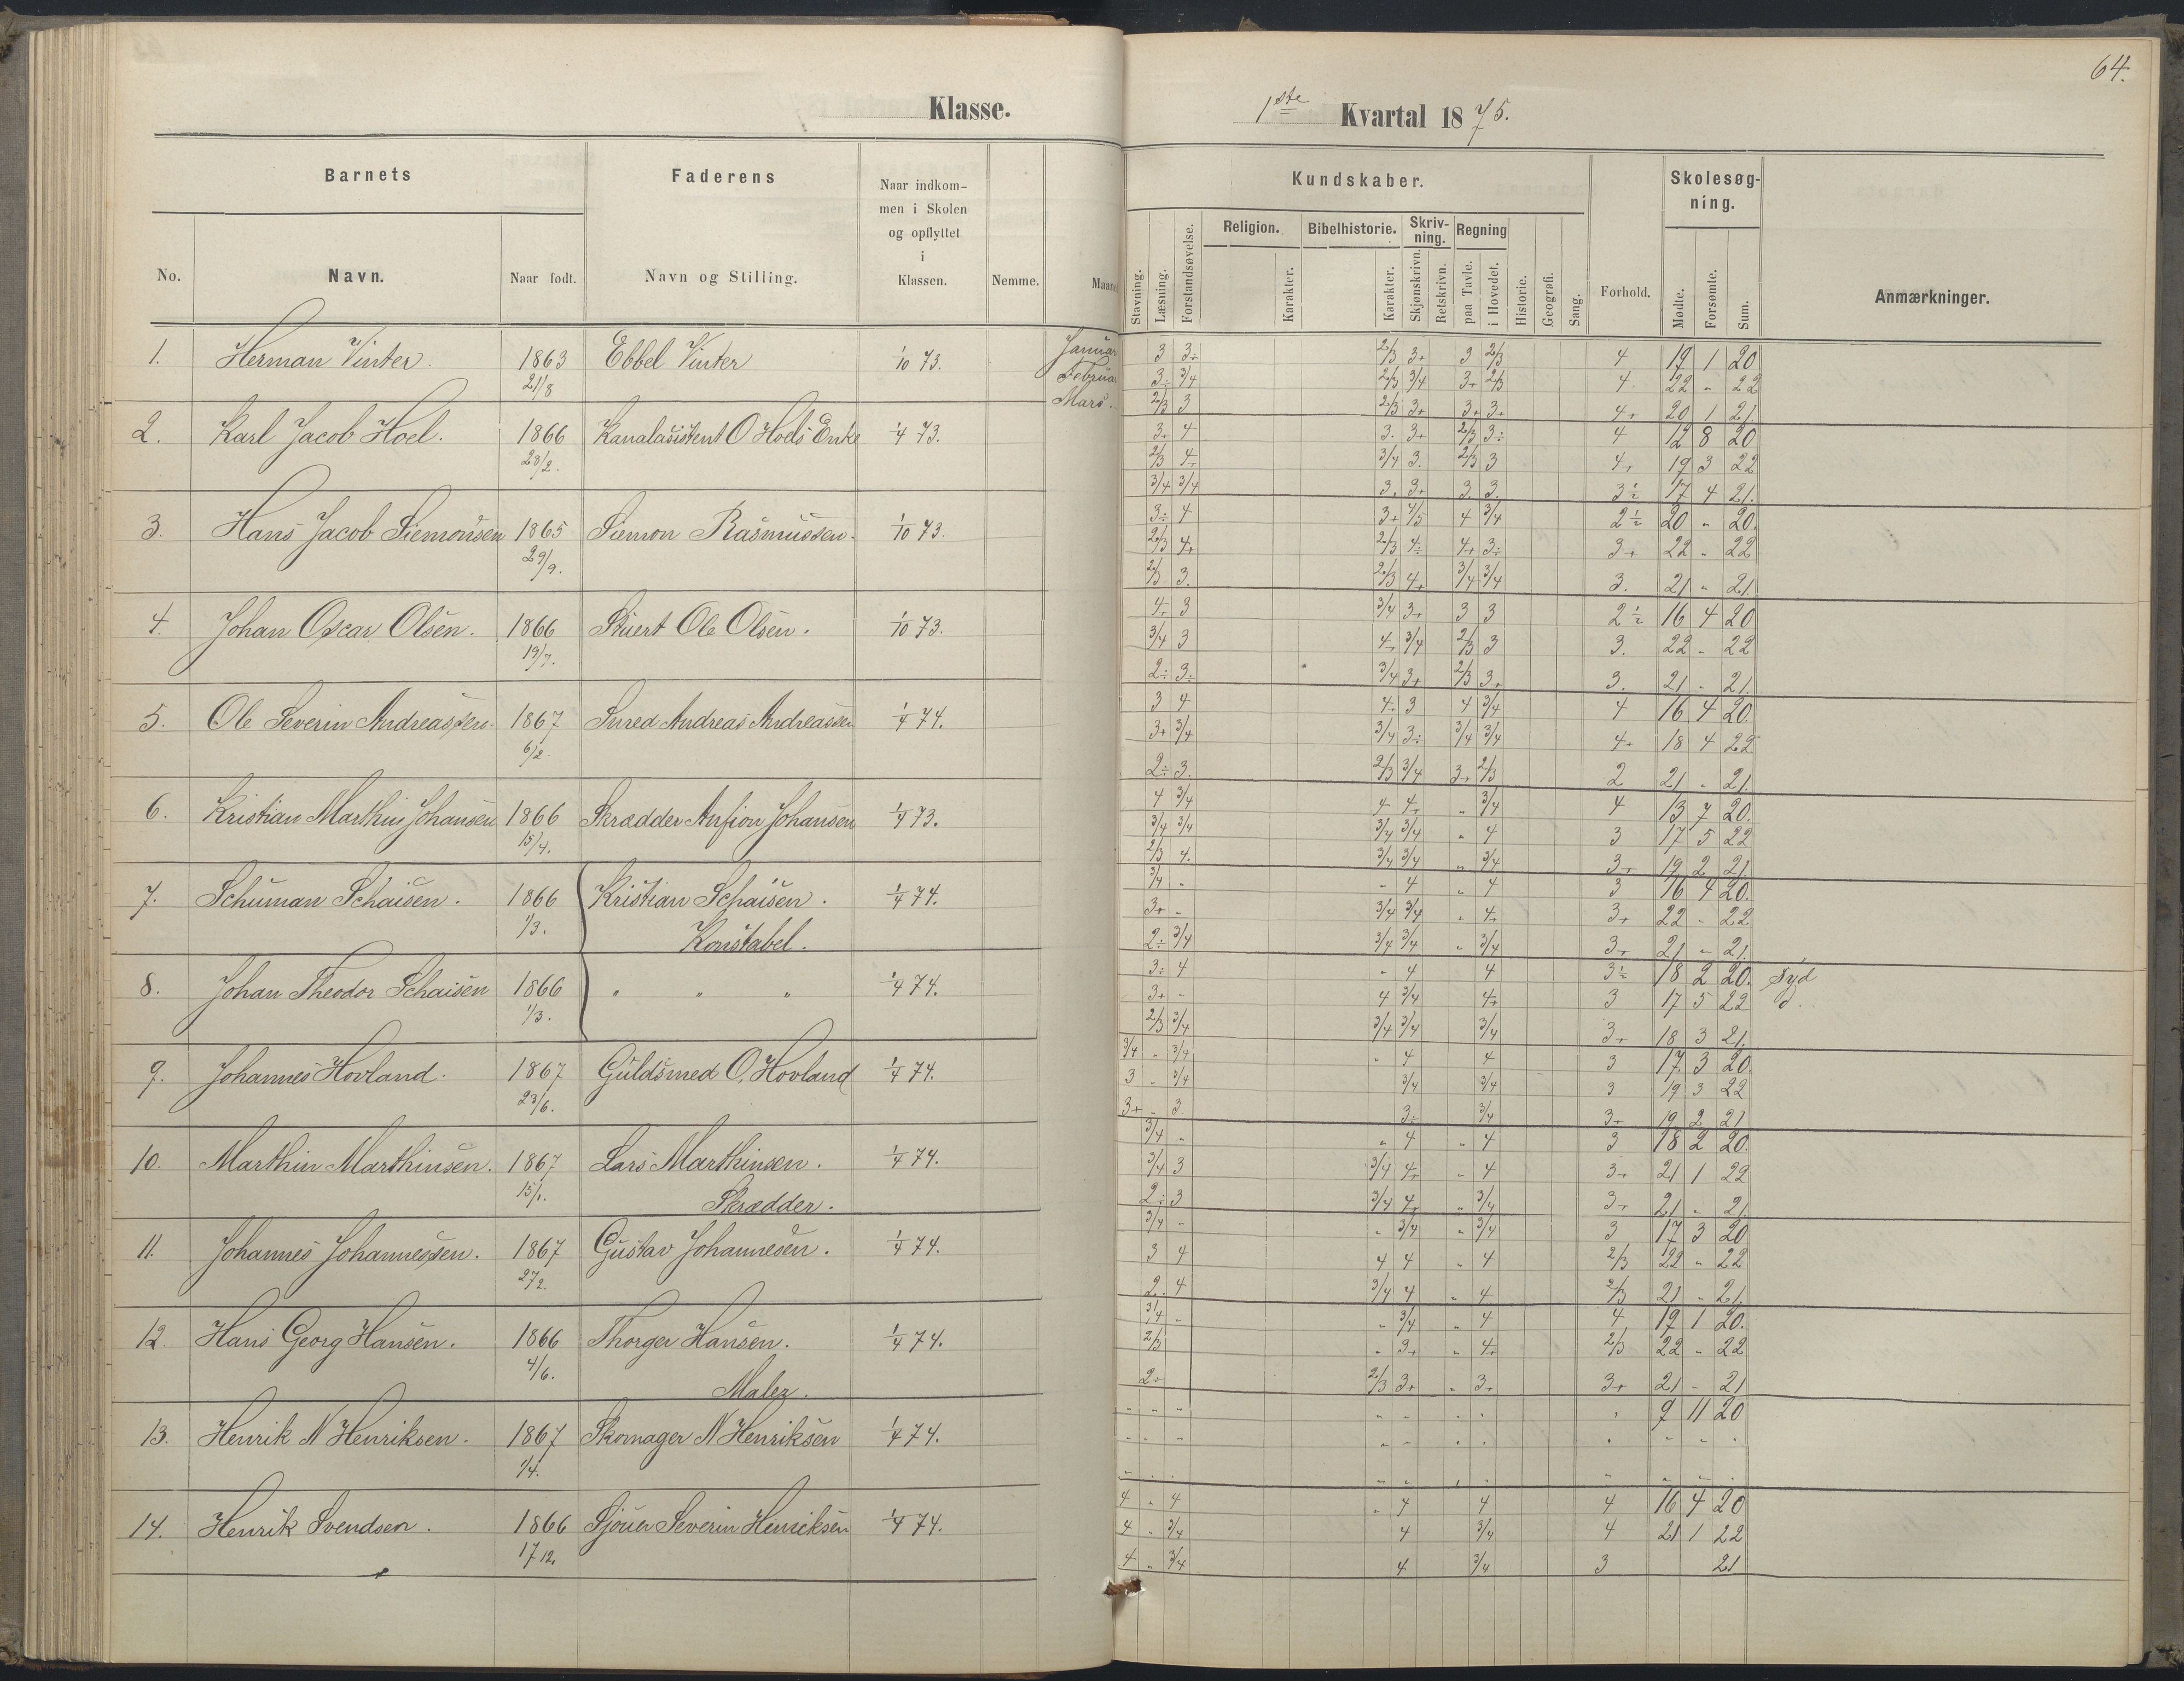 64.
Klasse.
1ste Kvartal 1875.
Barnets
Faderens
Naar indkom-
men i Skolen
og opflyttet
i
Klassen.
No.
Navn.
Naar født.
Navn og Stilling.
Nemme.
Maaned
Kundskaber.
Skolesøg-
ning.
Stavning.
Læsning.
Forstandsøvelse.
Religion.
Bibelhistorie.
Skriv-
ning.
Regning
Karakter.
Karakter.
Skjønskrivn.
Retskrivn.
paa Tavle.
i Hovedet.
Historie.
Geografi.
Sang.
Forhold.
Mødte.
Forsømte.
Sum.
Anmærkninger.
1. Herman Vinter. 1863 Ebbel Vinter 1/10 73. Januar 3 3÷ 2/3 3+ 3 2/3 4 19 1 20
21/8 Februar 3÷ 3/4 2/3 3/4 3+ 2/3 4 22 " 22
Mars. 2/3 3 2/3 3+ 3+ 3+ 4+ 20 1 21
2. Karl Jacob Hoel. 1866 Kanalasistent O Hoels Enke 1/4 73. 3+ 4 3. 3+ 2/3 3÷ 4 12 8 20
23/2. 2/3 4+ 3/4 3. 2/3 3 4+ 19 3 22
3/4 3/4 3. 3+ 3. 3. 3÷ 17 4 21.
3. Hans Jacob Siemonsen 1865 Siemon Rasmussen. 1/10 73. 3÷ 4 3+ 4/5 4 3/4 2÷ 20 " 20.
29/9. 2/3 4+ 2/3 4÷ 4+ 3÷ 3+ 22 " 22
2/3 3. 2/3 4+ 3/4 3/4 3. 21 " 21.
4. Johan Oscar Olsen. 1866 Stuert Ole Olsen. 1/10 73. 4+ 3 3/4 3+ 3 3 2÷ 16 4 20
19/7. 3/4 3 4+ 3/4 2/3 3 3. 22 " 22
2÷ 3÷ 3/4 3+ 2/3 3+ 3. 21 " 21.
5. Ole Severin Andreassen. 1867 Smed Andreas Andreassen 1/4 74. 3 4 4. 3 4 3/4 4 16 4 20.
6/2. 3+ 3/4 3/4 3÷ 3/4 3/4 4+ 18 4 22
2÷ 3. 2/3 3/4 3+ 2/3 2 21 " 21.
6. Kristian Marthin Johansen 1866 Skrædder Anfion Johansen 1/4 73. 4 3/4 4 4+ " 3/4 4 13 7 20.
15/4. 3/4 3/4 3/4 3/4 " 4 3 17 5 22
2/3 4. 3/4 3/4 " 3/4 3+ 19 2 21
7. Schuman Schaisen. 1866 Kristian Schaisen. 1/4 74. 3/4 " " 4 " 4 3 16 4 20.
1/3. Konstabel. 3+ " 3/4 3/4 " 4+ 3+ 22 " 22
2÷ 3/4 3/4 3/4 " 3/4 3+ 21 " 21.
8. Johan Theodor Schaisen 1866 " " " 1/4 74. 3÷ 4 " 4 4 3÷ 18 2 20. Syd
1/3. 3+ " 4 3/4 4+ 3 17 5 22 d.
2/3 3/4 3/4 3/4 3/4 3+ 18 3 21.
9. Johannes Hovland. 1867 Guldsmed O. Hovland 1/4 74. 3/4 " 3/4 " 4 4 3 17. 3 20.
23/6. 3 " 3/4 3/4 3/4 3 19 3 22
3+ " 3 3÷ 3/4 3+ 19 2 21
10. Marthin Marthinsen. 1867 Lars Marthinsen. 1/4 74. 3/4 " " 4 " 4 3 18 2 20.
15/1. Skrædder. 3/4 3 3/4 4+ " 4 3+ 21 1 22
2÷ 3 3/4 4+ " 3/4 3+ 21 " 21
11. Johannes Johannessen. 1867 Gustav Johannesen. 1/4 74. 3/4 " " 3/4 " 3/4 3 17 3 20
27/2. 3 4 4 4 " 4 2/3 22 " 22
2. 4 3/4 4 " 4 2/3 21 " 21.
12. Hans Georg Hansen. 1866 Thorger Hansen. 1/4 74. 3/4 " " 3/4 " 4 4 19 1 20.
4/6. Maler. 2/3 " 3+ " 4+ 2/3 22 " 22
2+ 2/3 3+ " 3+ 3+ 21 - 21
13. Henrik N Henriksen. 1867 Skomager N Henriksen 1/4 74. " " " " " " " " 9 11 20
1/4. " " " " " " " " " " "
" " " " " " " " " " "
14. Henrik Svendsen. 1866 Sjouer Severin Henriksen 1/4 74. 4 " 4 " 4 4 4 16 4 20
17 12. 4 " 3/4 4 3/4 4 21 1 22
4 " 3/4 4 3/4 3 21